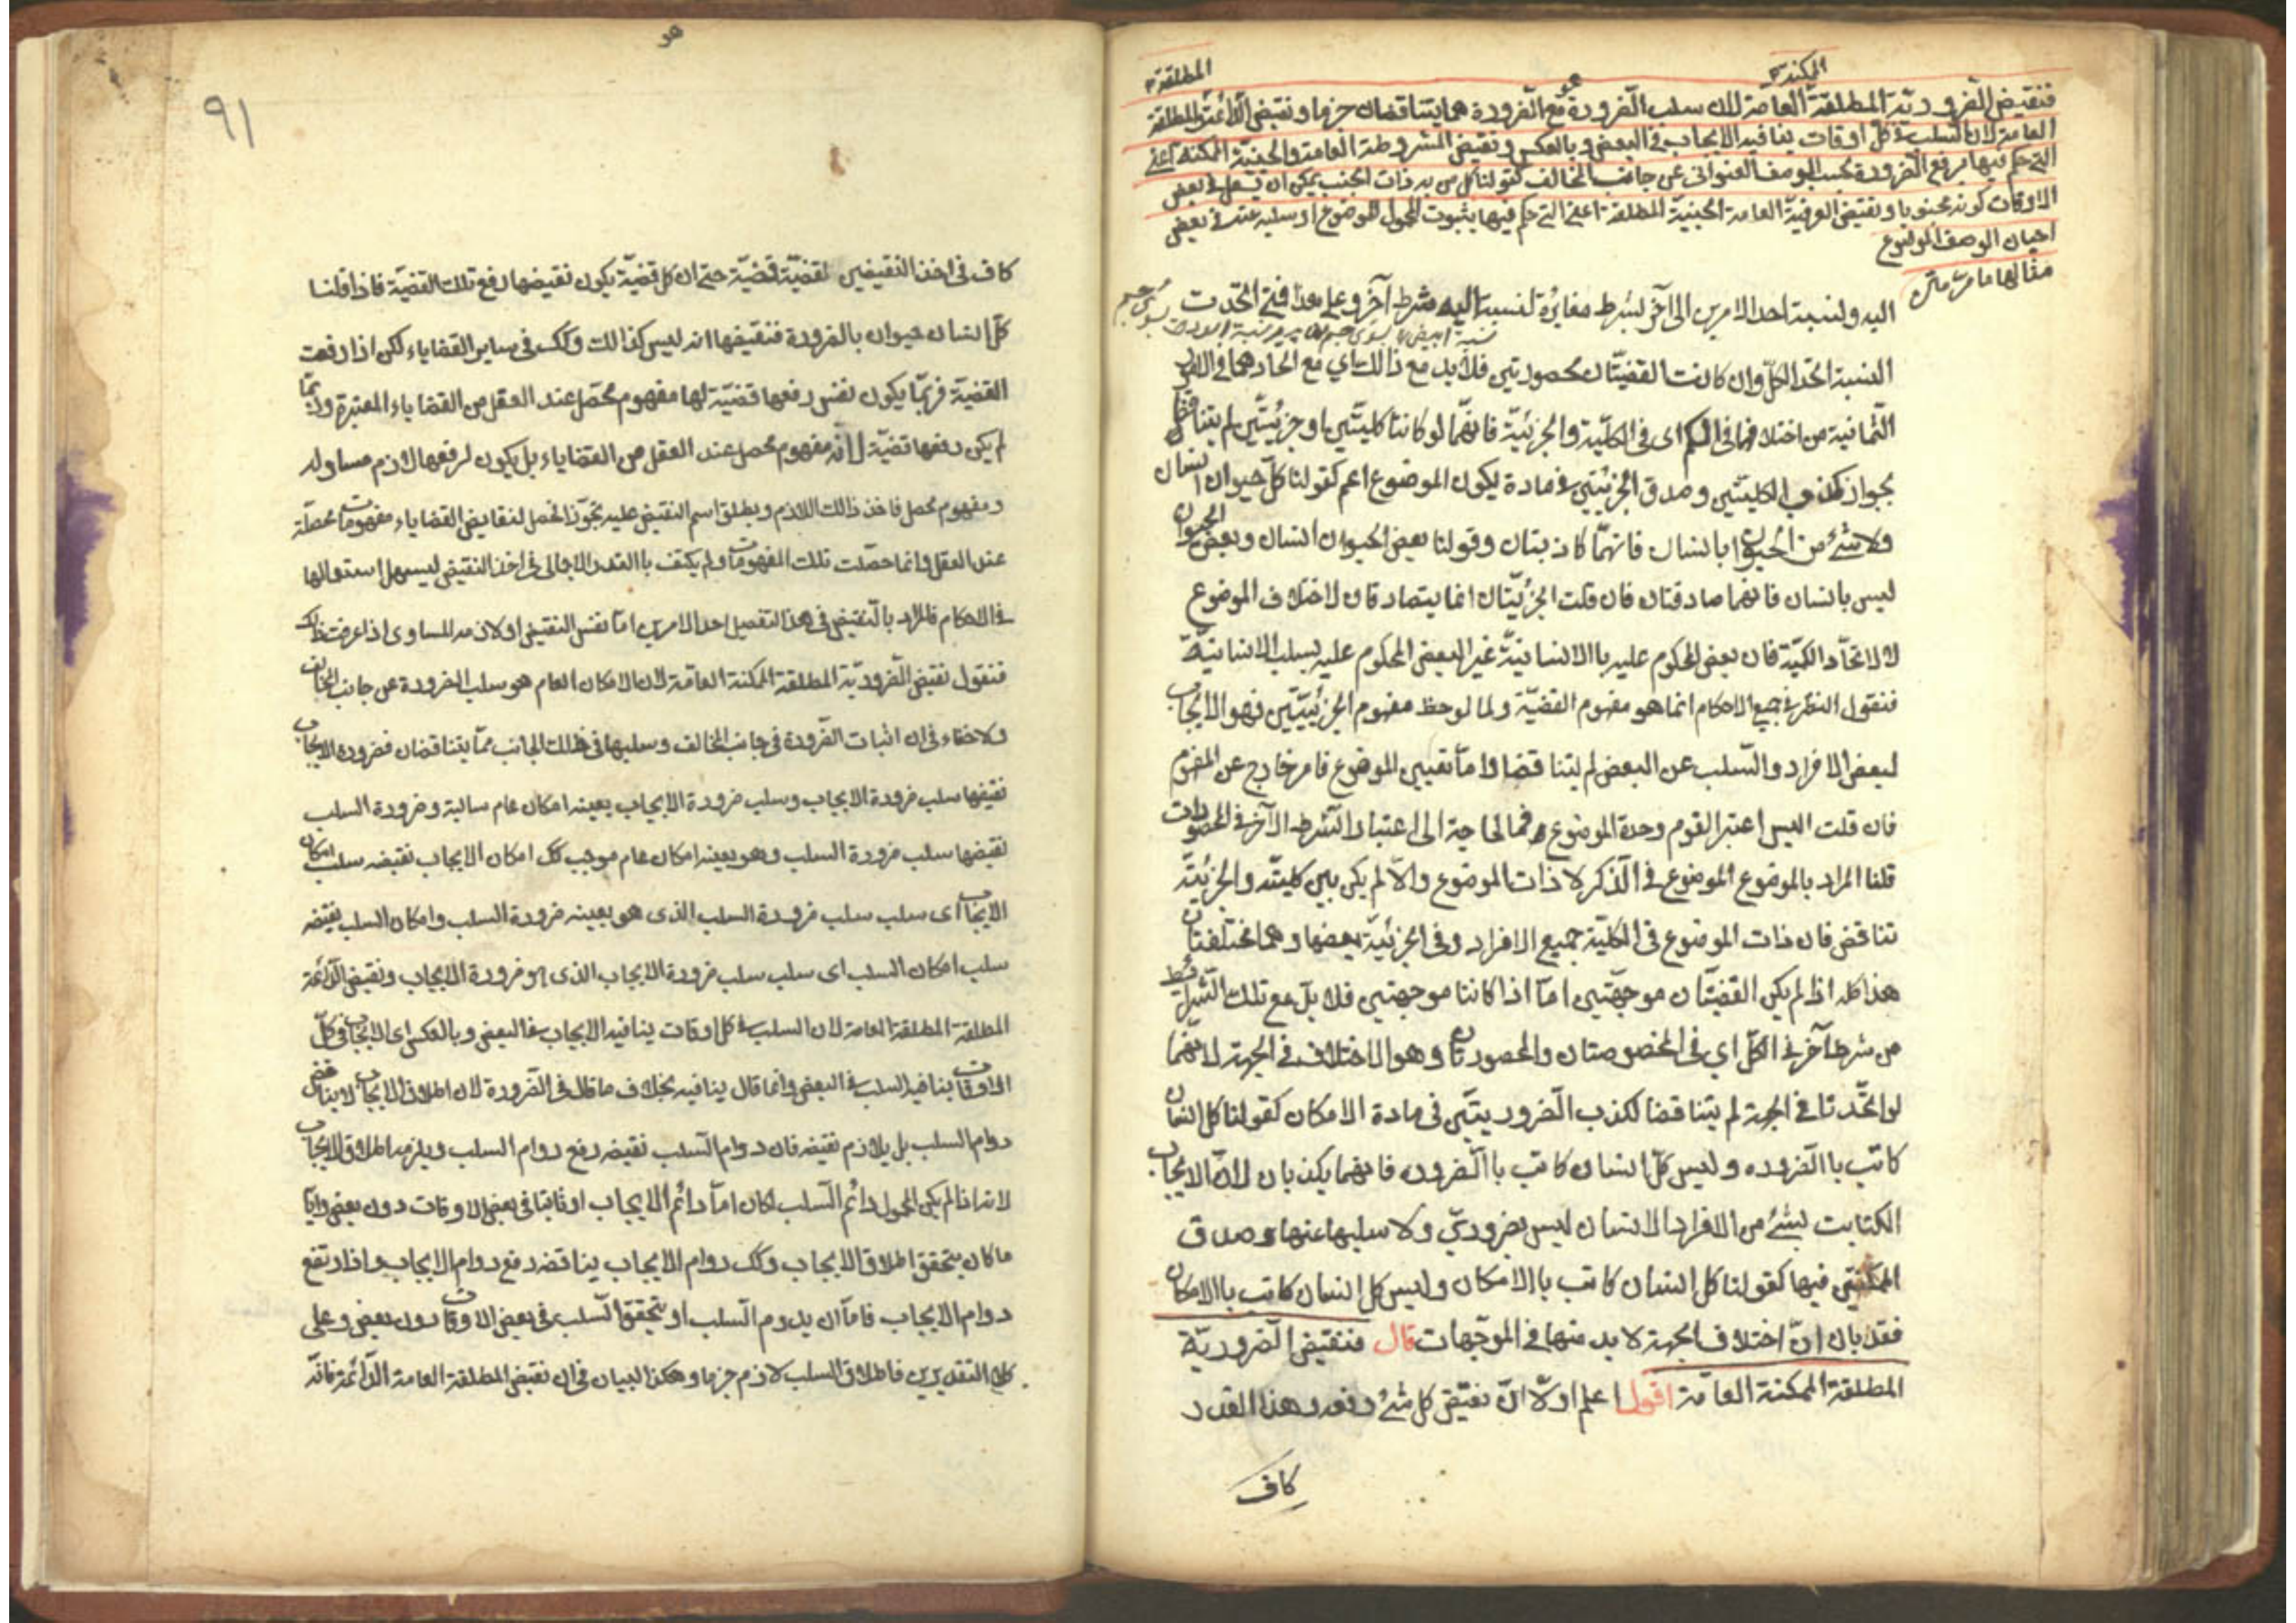 الممكنة
المطلقة
فنقيض الضرورية المطلقة العامة لان سلب الضرورة مع الضرورة مما يتناقضان جزما ونقيض الدائمة المطلقة
العامة لان السلب في كل اوقات ينافيه الايجاب في البعض وبالعكس ونقيض المشروطة العامة والحينية الممكنة اعني
التي حكم فيها برفع الضرورة بحسب الوصف العنواني عن جانب المخالف كقولنا كل من به ذات الجنب يمكن ان يسعل في بعض
الاوقات كونه مجنوبا ونقيض العرفية العامة الحينية المطلقة اعني التي حكم فيها بثبوت المحمول للموضوع او سلبه عنه في بعض
احيان الوصف الموضوع
مثالها ما مر
اليه ولنسبة احد الامرين الى آخر بشرط مغايرة لنسبة اليه بشرط آخر وعلى هذا فمتى اتحدت
النسبة اتحد الكل وان كانت القضيتان محصورتين فلا بد مع ذالك اي مع اتحادهما في الامور
الثمانية من اختلافهما في الكم اى في الكلية والجزئية فانهما لو كانتا كليتين او جزئيتين لم يتناقضا
بجواز كذب الكليتين وصدق الجزئيتين في مادة يكون الموضوع اعم كقولنا كل حيوان انسان
ولا شئ من الحيوان بانسان فانهما كاذبتان وقولنا بعض الحيوان انسان وبعض الحيوان
ليس بانسان فانهما صادقتان فان قلت الجزئيتان انما يتصادقان لاختلاف الموضوع
لا لاتحاد الكمية فان بعض المحكوم عليه باالانسانية غير البعض المحكوم عليه بسلب الانسانية
فنقول النظر في جميع الاحكام انما هو مفهوم القضية ولما لوحظ مفهوم الجزئيتين فهو الايجاب
لبعض الافراد والسلب عن البعض لم يتناقضا واما تعيين الموضوع فامر خارج عن المفهوم
فان قلت اليس اعتبر القوم وحدة الموضوع فما الحاجة الى اعتبار الشرط الآخر في المحصورات
قلنا المراد بالموضوع الموضوع في الذكر لا ذات الموضوع والا لم يكن بين كلية والجزئية
تناقض فان ذات الموضوع في الكلية جميع الافراد وفي الجزئية بعضها وهما مختلفتان
هذا كله اذا لم يكن القضيتان موجهتين اما اذا كانتا موجهتين فلا بد مع تلك الشرايط
من شرط آخر في الكل اى في المخصوصتان والمحصورتان وهو الاختلاف في الجهة لانهما
لو اتحدتا في الجهة لم يتناقضا لكذب الضروريتين في مادة الامكان كقولنا كل انسان
كاتب باالضروره وليس كل انسان كاتب باالضروره فانهما يكذبان لان الايجاب
الكتابت لشئ من الافراد الانسان ليس بضروري ولا سلبها عنها وصدق
الممكنتين فيها كقولنا كل انسان كاتب باالامكان وليس كل انسان كاتب باالامكان
فقد بان ان اختلاف الجهة لا بد منها في الموجهات قال فنقيض الضرورية
المطلقة الممكنة العامة اقول اعلم اولا ان نقيض كل شئ رفعه وهذا القدر
كاف
٩١
كاف في اخذ النقيضين لقضية قضية حتى ان كل قضية يكون نقيضها رفع تلك القضية فاذا قلنا
كل انسان حيوان بالضرورة فنقيضها انه ليس كذالك وكك في ساير القضاياء لكن اذا رفعت
القضية فربما يكون نفس رفعها قضية لها مفهوم محصل عند العقل من القضاياء المعتبرة وربما
لم يكن رفعها قضية لها مفهوم محصل عند العقل من القضاياء بل يكون لرفعها لازم مساو له
ومفهوم محصل فاخذ ذالك اللازم ويطلق اسم النقيض عليه تجوزا فحصل لنقايض القضاياء مفهومات محصلة
عند العقل وانما حصلت تلك المفهومات ولم يكتف باالقدر الاجمالى في اخذ النقيض ليسهل استعمالها
في الاحكام فالمراد بالنقيض في هذا التفصيل احد الامرين اما نفس النقيض او لازمه المساوى اذا عرفت ذالك
فنقول نقيض الضرورية المطلقة الممكنة العامة لان الامكان العام هو سلب الضرورة عن جانب المخالف
ولا خفاء في ان اثبات الضرورة في جانب المخالف وسلبها في ذالك الجانب مما يتناقضان فضرورة الايجاب
نقيضها سلب ضرورة الايجاب وسلب ضرورة الايجاب بعينه امكان عام سالبة وضرورة السلب
نقيضها سلب ضرورة السلب وهو بعينه امكان عام موجب كك امكان الايجاب نقيضه سلب امكان
الايجاب اى سلب سلب ضرورة السلب الذى هو بعينه ضرورة السلب وامكان السلب نقيضه
سلب امكان السلب اى سلب سلب ضرورة الايجاب الذى هو ضرورة الايجاب ونقيض الدائمة
المطلقة المطلقة العامة لان السلب في كل اوقات ينافيه الايجاب في البعض وبالعكس اى الايجاب في كل
الاوقات ينافيه السلب في البعض وانما قال ينافيه بخلاف ما قال في الضرورة لان اطلاق الايجاب لا يناقض
دوام السلب بل يلازم نقيضه فان دوام السلب نقيضه رفع دوام السلب ويلزمه اطلاق الايجاب
لانه اذا لم يكن المحمول دائم السلب لكان اما دائم الايجاب او ثابتا في بعض الاوقات دون بعض وايا
ما كان يتحقق اطلاق الايجاب وكك دوام الايجاب يناقضه رفع دوام الايجاب واذا ارتفع
دوام الايجاب فاما ان يدوم السلب او يتحقق السلب في بعض الاوقات دون بعض وعلى
كلا التقديرين فاطلاق السلب لازم جزما وهكذا البيان في ان نقيض المطلقة العامة الدائمة فانه